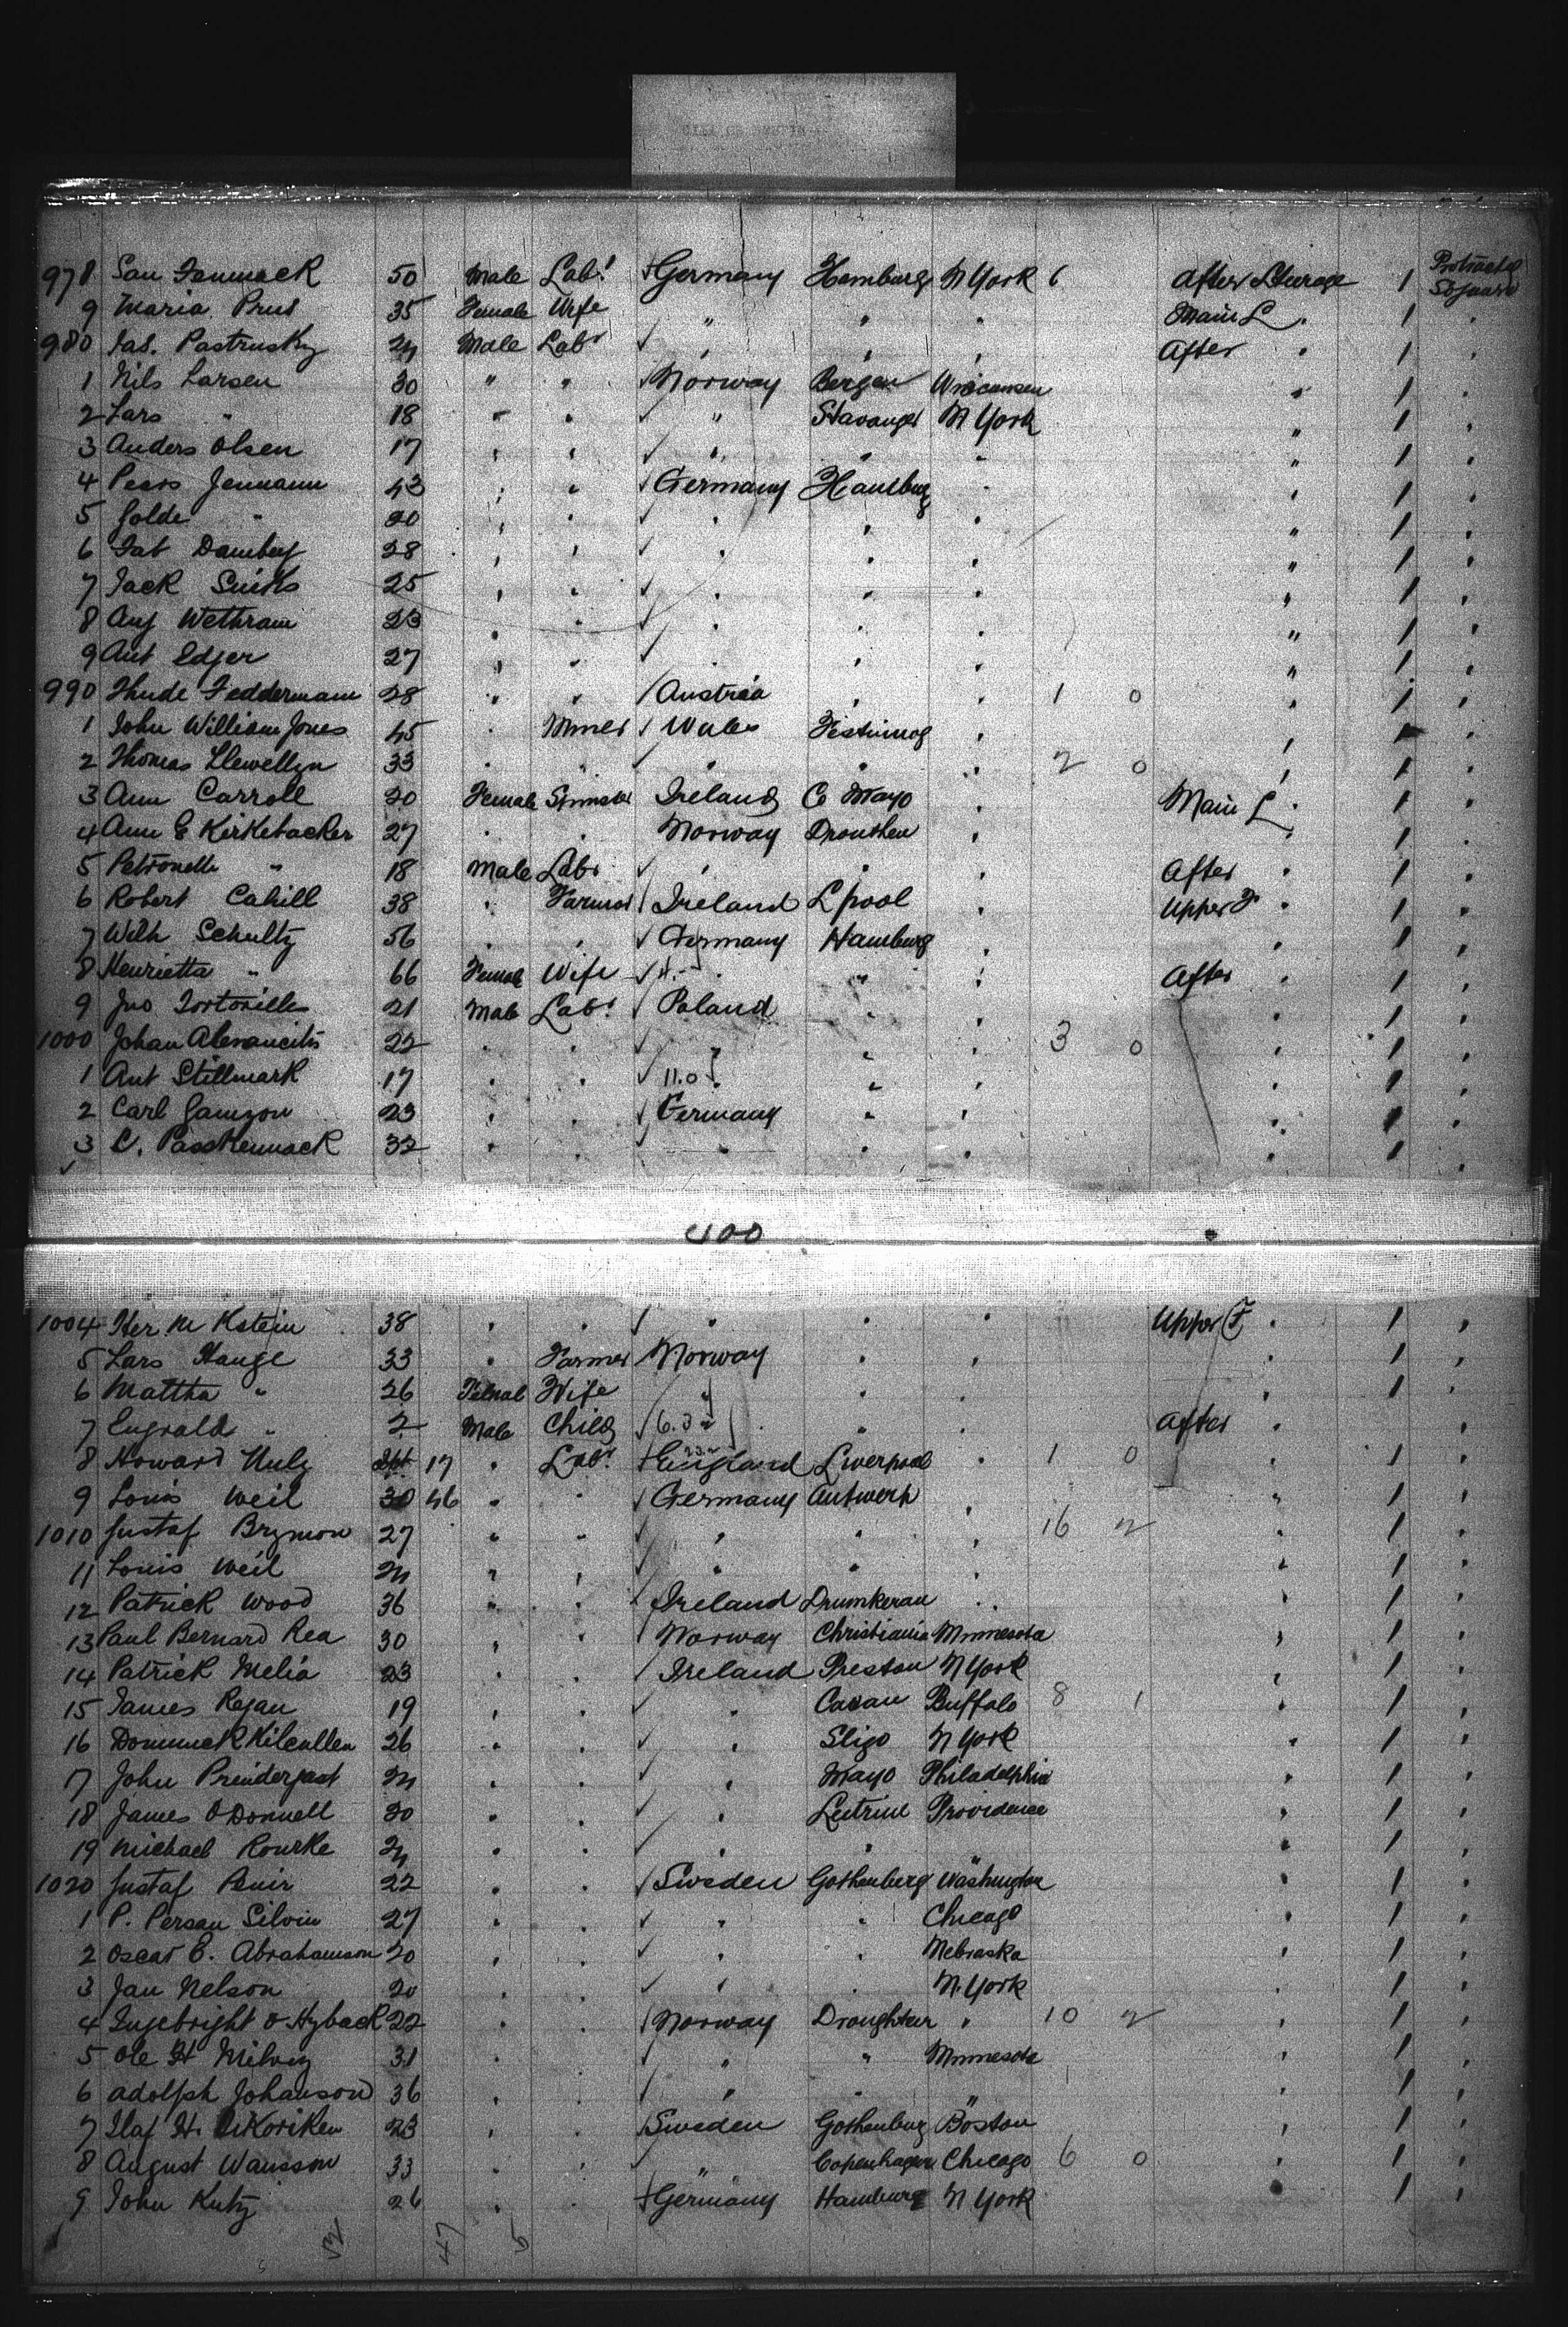 978 San Janmack 50 Male Labr Germany Hamburg N York 6 After Steerage 1 Protracted Sojourn
9 Maria Prus 35 Female Wife " " " Main L. 1 "
980 Jas. Pastrusky 24 Male Labr " " " After " 1 "
1 Nils Larsen 30 " " Norway Bergen Wisconsin " 1 "
2 Lars " 18 " " " Stavanger N York " 1 "
3 Anders Olsen 17 " " " " " " 1 "
4 Jenmann 43 " " Germany Hamburg " " 1 "
5 Golde " 20 " " " " " " 1 "
6 28 " " " " " " 1 "
7 Jack 25 " " " " " " 1 "
8 Aug Wethram 23 " " " " " " 1 "
9 Ant Edger 27 " " " " " " 1 "
990 Thude Feddermann 28 " " Austria " " 1 0 " 1 "
1 John William Jones 45 " Miner Wales " " 1 "
2 Thomas Llewellyn 33 " " " " " 2 0 " 1 "
3 Ann Carroll 20 Female Spinster Ireland Co Mayo " Main L. 1 "
4 Ann E Kirkebacker 27 " " Norway Dronthen " " 1 "
5 Petronelle " 18 Male Labr " " " After " 1 "
6 Robert Cahill 38 " Farmer Ireland L'pool " Upper F " 1 "
7 Wilh Schultz 56 " " Germany Hamburg " " 1 "
8 Henrietta " 66 Female Wife " " " After " 1 "
9 Jno 21 Male Labr Poland " " " 1 "
1000 Johan 22 " " " " " 3 0 " 1 "
1 Ant Stillmark 17 " " 11.0 " " " 1 "
2 Carl Gamzon 23 " " Germany " " " 1 "
3 C. Passkennack 32 " " " " " " 1 "
400
1004 Her M Kstein 38 " " " " " Upper F " 1 "
5 Lars Hauge 33 " Farmer Norway " " " 1 "
6 Mattha " 26 Femal Wife " " " " 1 "
7 Engvald " 2 Male Child 6.3 " " After " "
8 Howard 17 " Labr England Liverpool " 1 0 " 1 "
9 Louis Weil 30 46 " " Germany Antwerp " " 1 "
1010 Gustaf Brymon 27 " " " " " 16 2 " 1 "
11 Louis Weil 24 " " " " " " 1 "
12 Patrick Wood 36 " " Ireland Drumkeran " " 1 "
13 Paul Bernard Rea 30 " " Norway Christiania Minnesota " 1 "
14 Patrick Melia 23 " " Ireland Preston N York " 1 "
15 James Regan 19 " " " Cavan Buffalo 8 1 " 1 "
16 Dominick Kilcullen 26 " " " Sligo N York " 1 "
17 John Prendergast 24 " " " Mayo Philadelphia " 1 "
18 James O'Donnell 20 " " " Leitrim Providence " 1 "
19 Michael Rourke 24 " " " " " " 1 "
1020 Gustaf 22 " " Sweden Gothenberg Washington " 1 "
1 P. Persan Silvin 27 " " " " Chicago " 1 "
2 Oscar E. Abrahamson 20 " " " " Nebraska " 1 "
3 Jan Nelson 20 " " " " N. York " 1 "
4 Ingebright O Hyback 22 " " Norway " 10 2 " 1 "
5 Ole H Milvig 31 " " " " Minnesota " 1 "
6 Adolph Johanson 36 " " " " " " 1 "
7 Olaf H. 23 " " Sweden Gothenburg Boston " 1 "
8 August Wansson 33 " " " Copenhagen Chicago 6 0 " 1 "
9 John Kutz 26 " " Germany Hamburg N York " 1 "
47 5